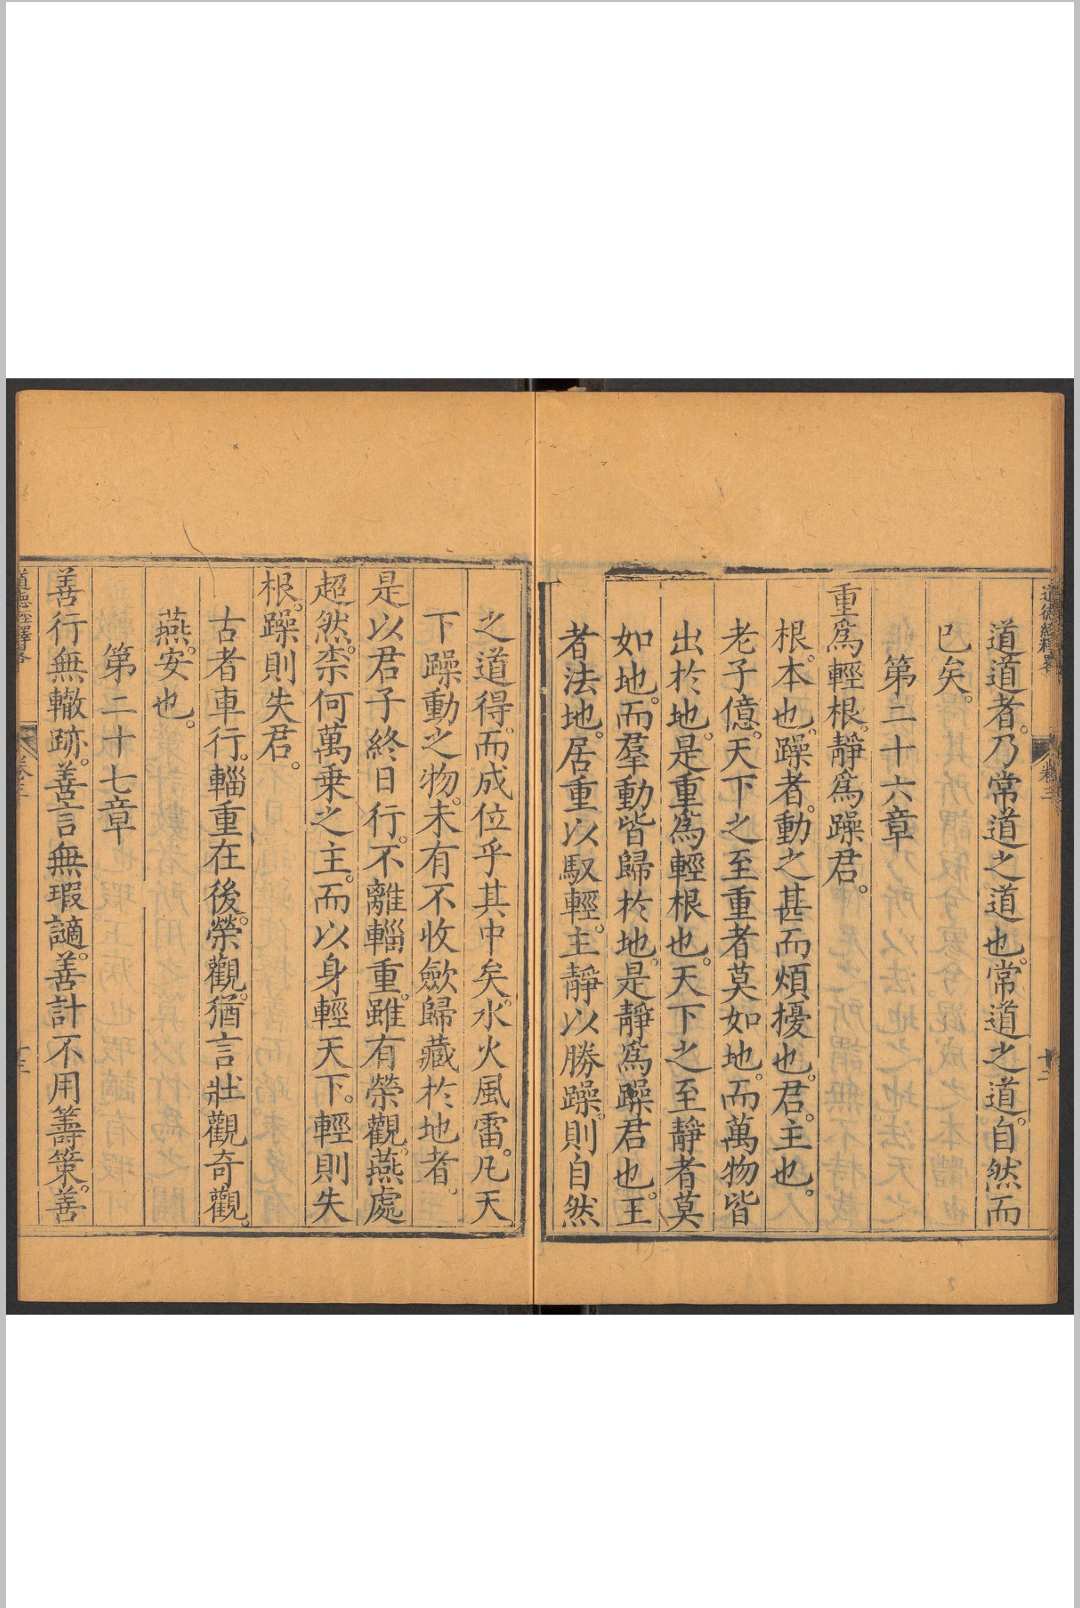 道德經釋畧
卷三
十二
道道者。乃常道之道也。常道之道。自然而
已矣。
第二十六章
重爲輕根。靜爲躁君。
根。本也。躁者。動之甚而煩擾也。君。主也。
老子億。天下之至重者莫如地。而萬物皆
出於地。是重爲輕根也。天下之至靜者莫
如地。而羣動皆歸於地。是靜爲躁君也。王
者法地。居重以馭輕。主靜以勝躁。則自然
之道得。而成位乎其中矣。水火風雷。凡天
下躁動之物。未有不收歛歸藏於地者。
是以君子終日行。不離輜重。雖有榮觀。燕處
超然。柰何萬乗之主。而以身輕天下。輕則失
根。躁則失君。
古者車行。輜重在後。榮觀。猶言壯觀奇觀。
燕。安也。
第二十七章
善行無轍跡。善言無瑕讁。善計不用籌策。善
道德經釋畧
卷三
十三